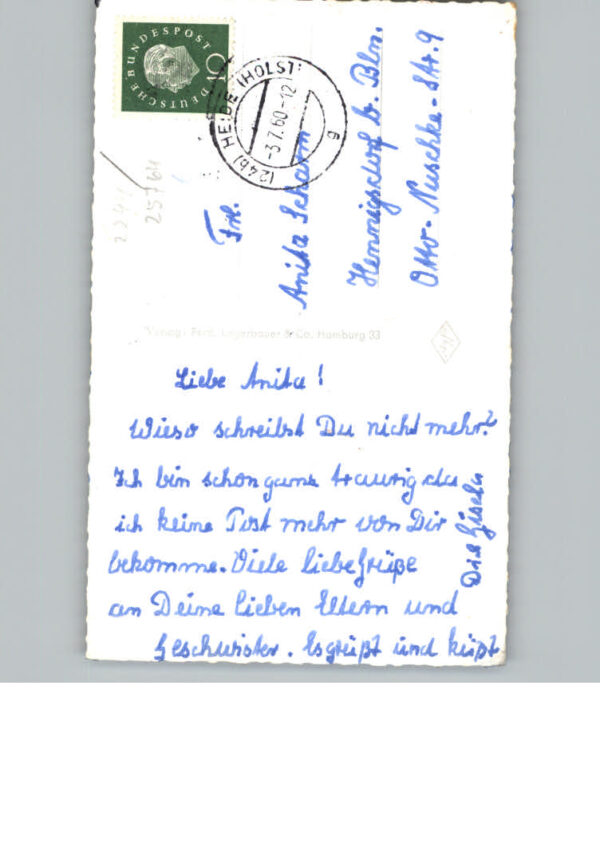 DEUTSCHE BUNDESPOST
10
(24b) HEIDE (HOLST)
-3.7.60-12
g
25764
Frl.
Anita Scharm
Hennigsdorf b. Bln.
Otto-Nuschke-Str. 9
Verlag: Ferd. Lagerbauer & Co. Hamburg 33
Liebe Anita!
Wieso schreibst Du nicht mehr?
Ich bin schon ganz traurig da
ich keine Post mehr von Dir
bekomme. Viele liebe Grüße
an Deine lieben Eltern und
Geschwister. Es grüßt und küßt
Dich Gisela